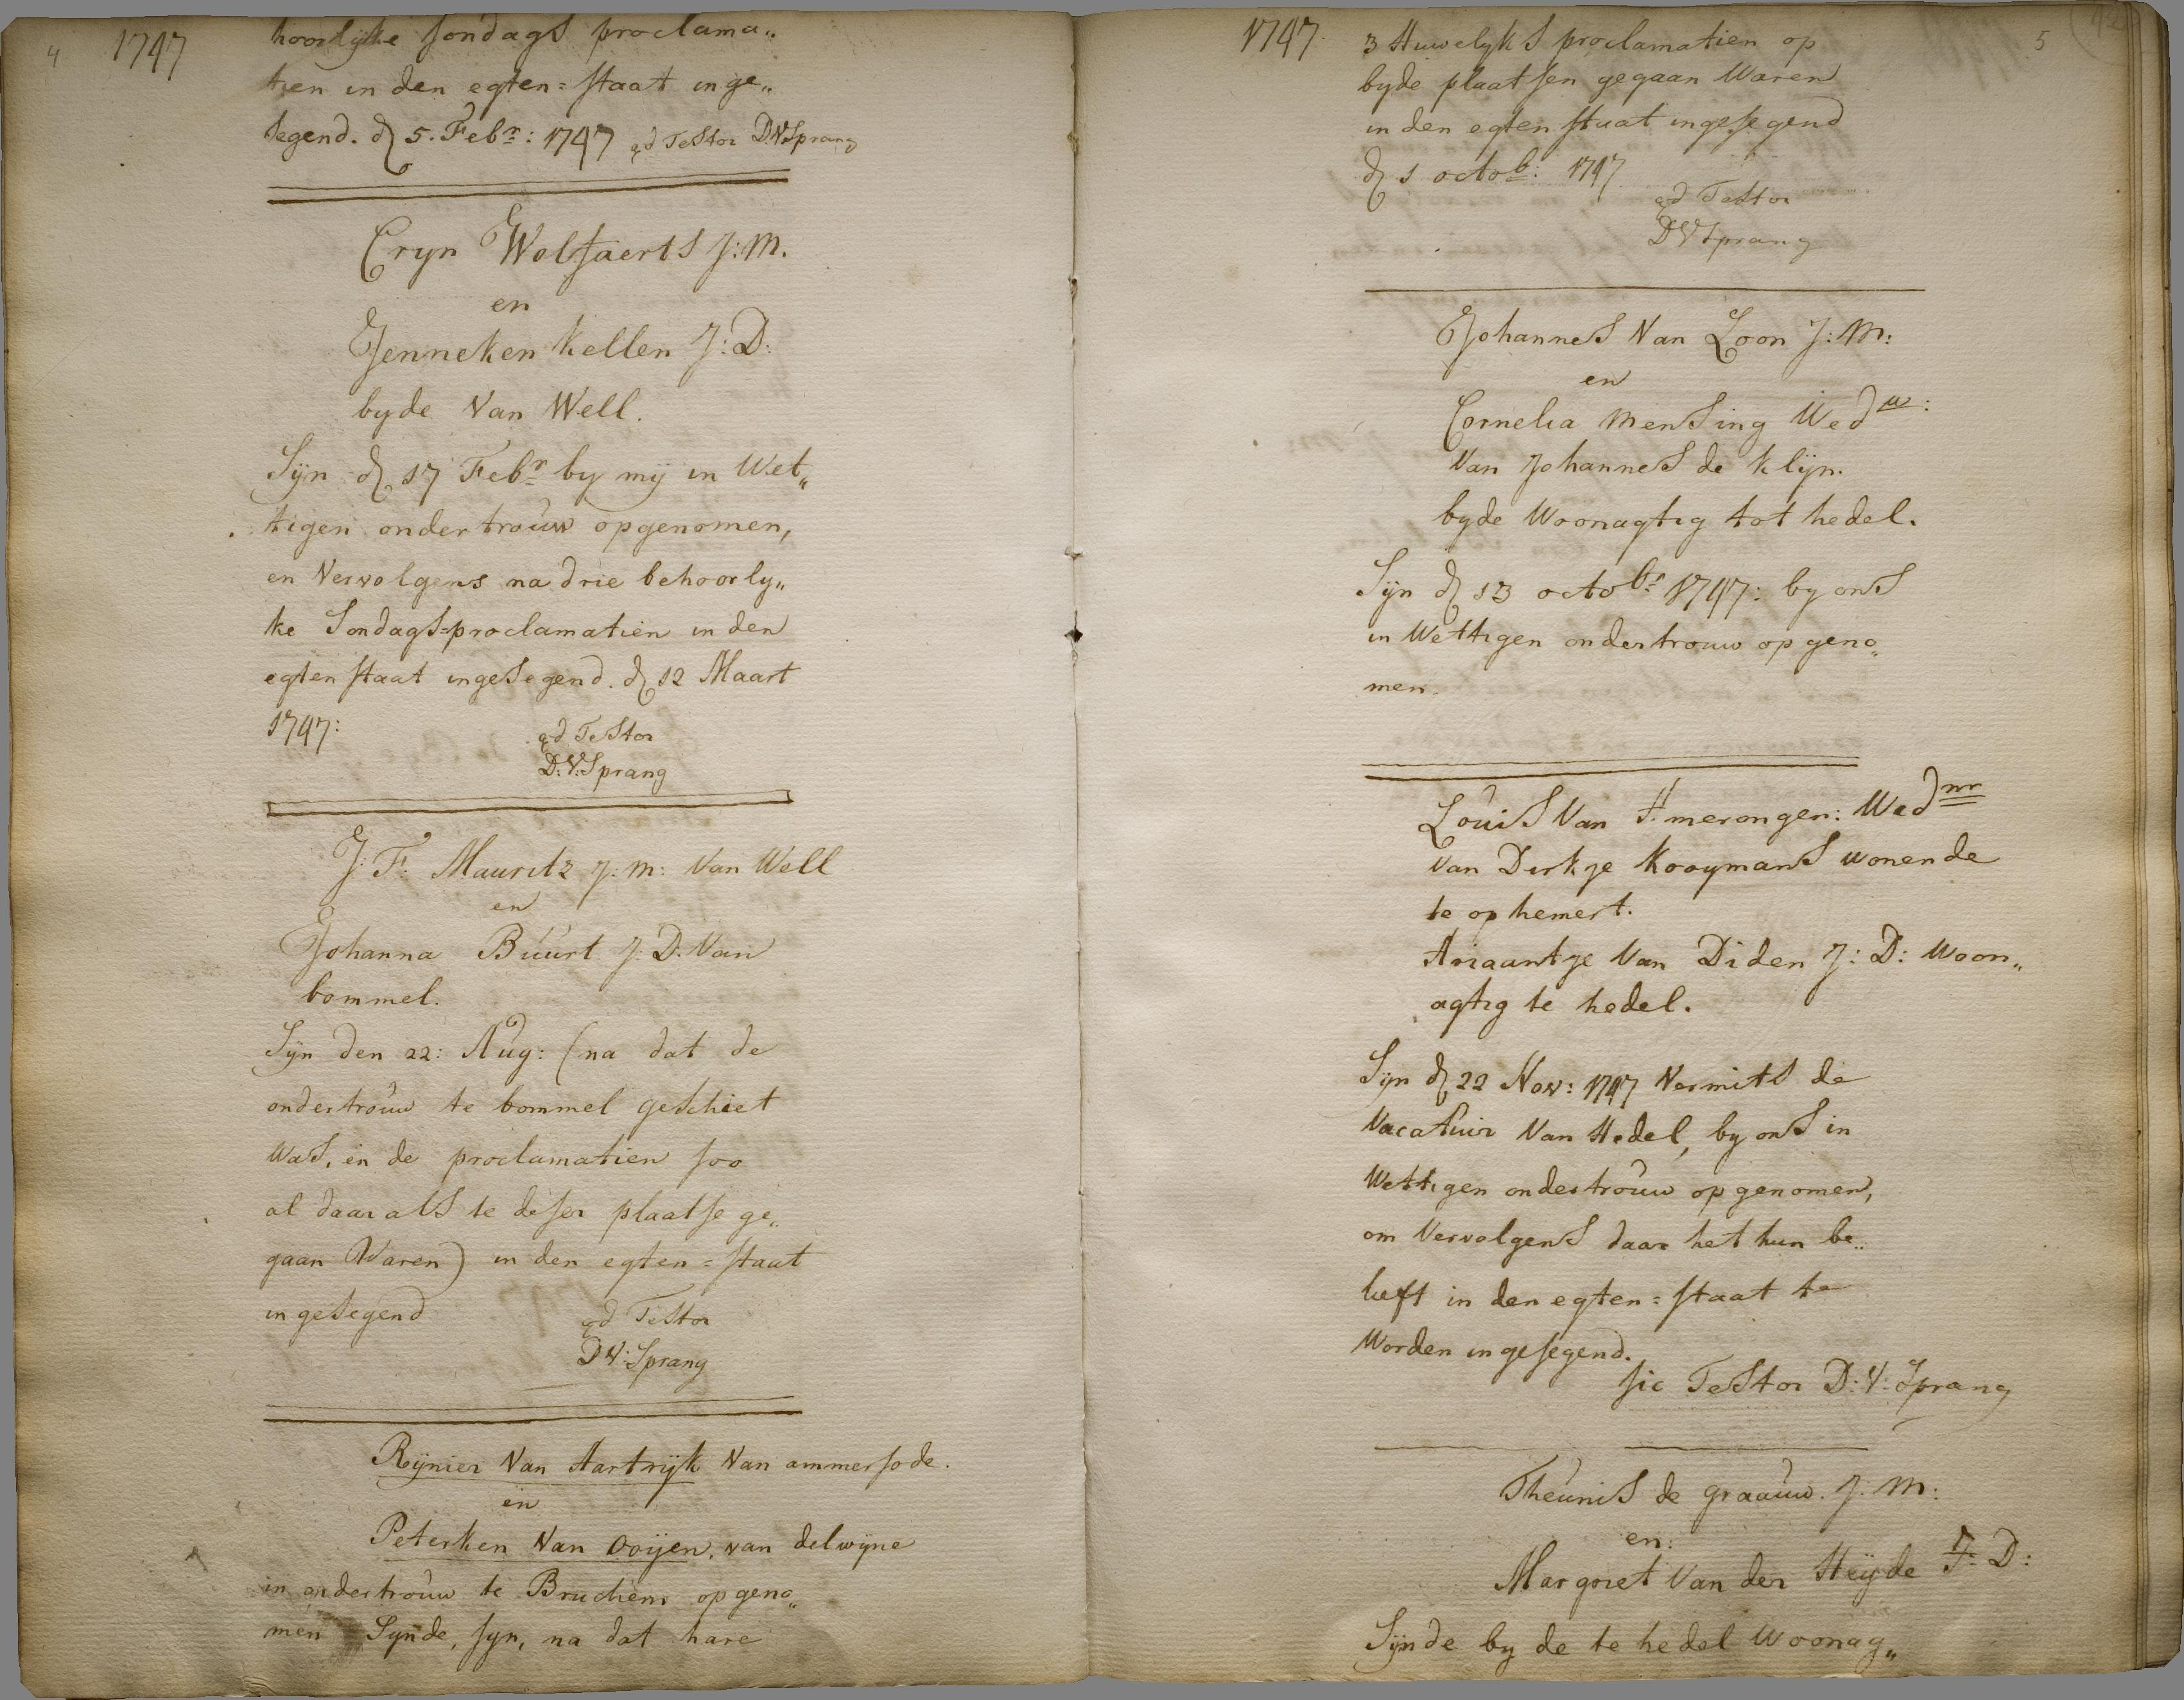 4
1747
hoorlyke sondags proclama„
tien in den egten=staat inge„
segend. d 5. Febr: 1747 qd Testor D.V.Sprang
Cryn Wolfaerts J:M.
en
Jenneken Kellen J:D.
byde Van Well.
Sijn d 17 Febr by mij in Wet„
tigen ondertrouw opgenomen,
en Vervolgens na drie behoorly„
ke Sondags=proclamatien in den
egten staat ingesegend. d 12 Maart
1747:
qd Testor
D:V:Sprang
J: F: Mauritz J:m: Van Well
en
Johanna Buurt J:D. Van
bommel.
Sijn den 22: Aug: (na dat de
ondertrouw te bommel geschiet
Was, en de proclamatien soo
al daar als te deser plaatse ge„
gaan Waren) in den egten=staat
ingesegend
qd Testor
D V: Sprang
Rijnier Van Hartrijk Van ammersode.
en
Peterken Van Ooijen, van delwijne
in ondertrouw te Bruchem opgeno„
men Synde, syn, na dat hare
1747.
5
3 Huwelyks proclamatien op
byde plaatsen gegaan Waren
in den egten staat ingesegend
d 1 octob: 1747
qd Testor
D V Sprang
Johannes Van Loon J:M:
en
Cornelia Mensing Wedw:
Van Johannes de Klijn.
byde Woonagtig tot hedel.
Sijn d 13 octobr 1747: by ons
in Wettigen ondertrouw opgeno„
men.
Louis Van Amerongen: Wednr
Van Dirkje Kooymans wonende
te ophemert.
Ariaantje Van Diden J:D: Woon„
agtig te hedel.
Sijn d 22 Nov: 1747 Vermits de
Vacatuir Van Hedel, by ons in
Wettigen ondertrouw opgenomen,
om Vervolgens daar het hun be„
lieft in den egten=staat te
Worden ingesegend.
sic Testor D:V:Sprang
Theunis de graauw. J:M:
en:
Margriet Van der Heijde J:D:
Sijnde byde te hedel Woonag„